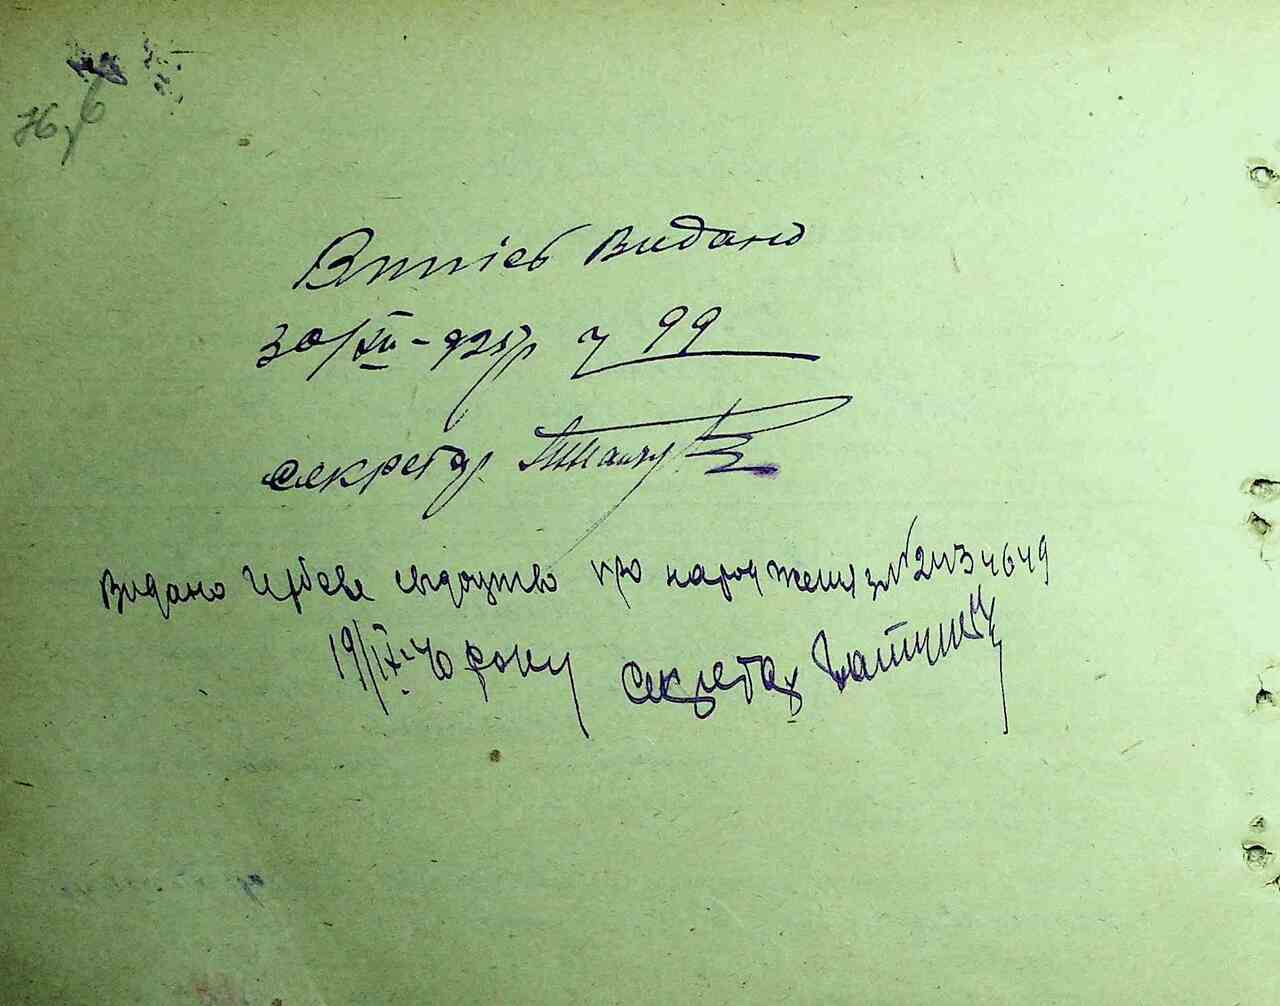 Витпісь Видано
30/XII-925р ч 99
секретар
Видано нове свідоцтво про народження за № 2434649
19/IX-40 року секретар